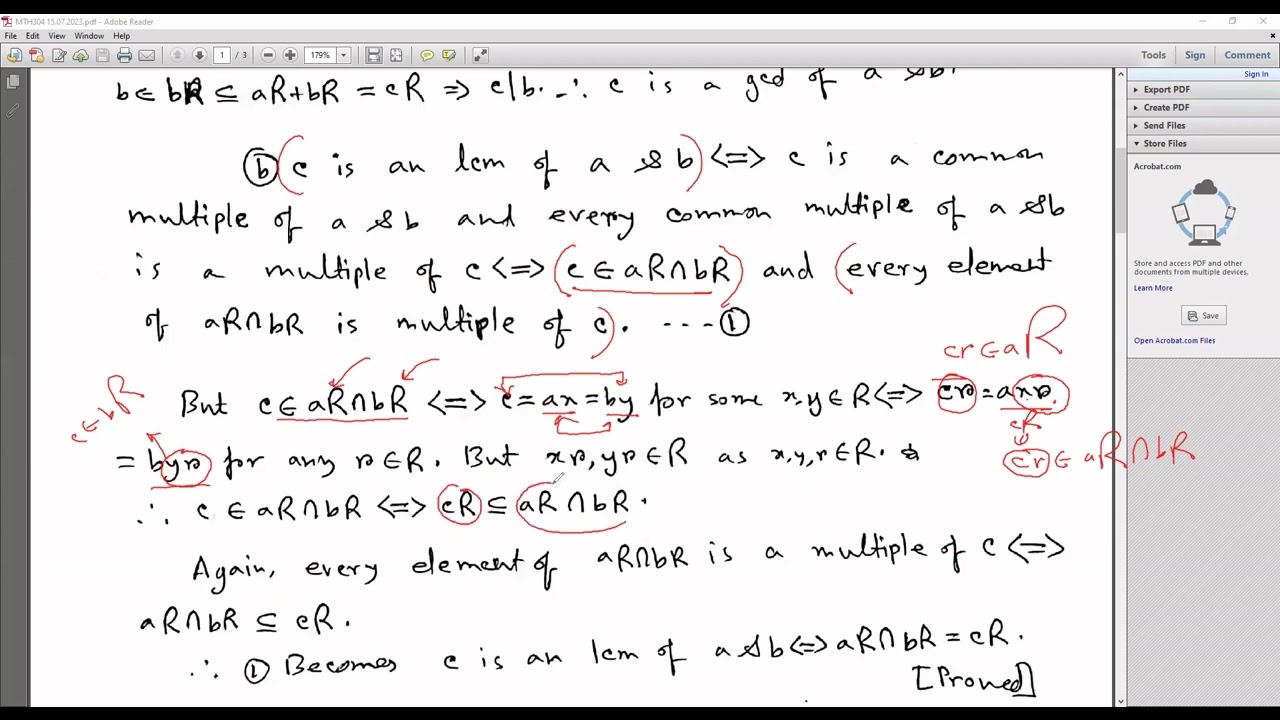 MTH304 15.07.2023.pdf - Adobe Reader
File Edit View Window Help
1 / 3 179% Tools Sign Comment
Sign In
Export PDF
Create PDF
Send Files
Store Files
Acrobat.com
Store and access PDF and other
documents from multiple devices.
Learn More
Save
Open Acrobat.com Files
b ∈ bR ⊆ aR+bR = cR => c|b. ∴ c is a gcd of a & b.
ⓑ (c is an lcm of a & b) <=> c is a common
multiple of a & b and every common multiple of a & b
is a multiple of c <=> (c ∈ aR∩bR) and (every element
of aR∩bR is multiple of c). ---- ①
cr ∈ aR
But c ∈ aR∩bR <=> c = ax = by for some x,y ∈ R <=> cr = axr
c ∈ bR
cR
= byr for any r ∈ R. But xr, yr ∈ R as x,y,r ∈ R.
cr ∈ aR∩bR
∴ c ∈ aR∩bR <=> cR ⊆ aR∩bR.
Again, every element of aR∩bR is a multiple of c <=>
aR∩bR ⊆ cR.
∴ ① Becomes c is an lcm of a & b <=> aR∩bR = cR.
[Proved]